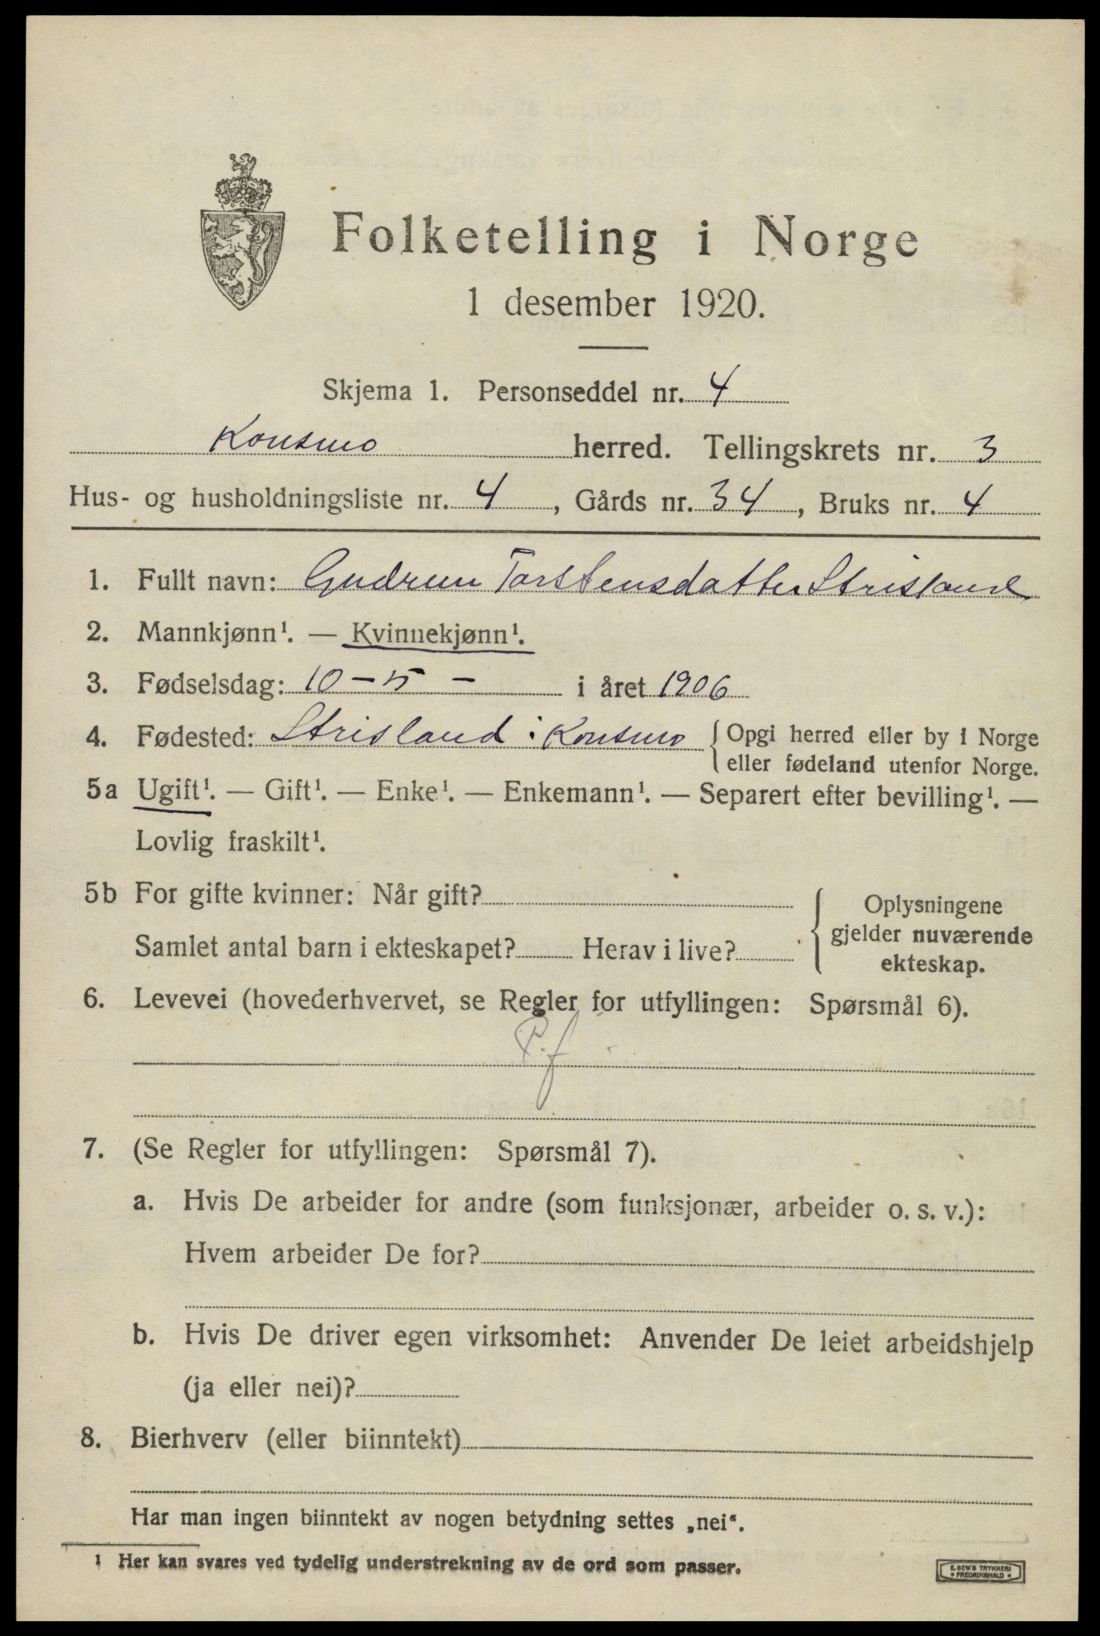 Folketelling i Norge
1 desember 1920.
Skjema 1. Personseddel nr. 4
Konsmo herred. Tellingskrets nr. 3
Hus- og husholdningsliste nr. 4, Gårds nr. 34, Bruks nr. 4
1. Fullt navn: Gudrun Torstensdatter Strisland
2. Mannkjønn¹. — Kvinnekjønn¹.
3. Fødselsdag: 10 - 5 - i året 1906
4. Fødested: Strisland i Konsmo { Opgi herred eller by i Norge
eller fødeland utenfor Norge.
5a Ugift¹. — Gift¹. — Enke¹. — Enkemann¹. — Separert efter bevilling¹. —
Lovlig fraskilt¹.
5b For gifte kvinner: Når gift?
Samlet antal barn i ekteskapet? Herav i live?
{ Oplysningene
gjelder nuværende
ekteskap.
6. Levevei (hovederhvervet, se Regler for utfyllingen: Spørsmål 6).
P.f
7. (Se Regler for utfyllingen: Spørsmål 7).
a. Hvis De arbeider for andre (som funksjonær, arbeider o. s. v.):
Hvem arbeider De for?
b. Hvis De driver egen virksomhet: Anvender De leiet arbeidshjelp
(ja eller nei)?
8. Bierhverv (eller biinntekt)
Har man ingen biinntekt av nogen betydning settes „nei“.
¹ Her kan svares ved tydelig understrekning av de ord som passer.
E. SEM'S TRYKKERI
* FREDRIKSHALD *